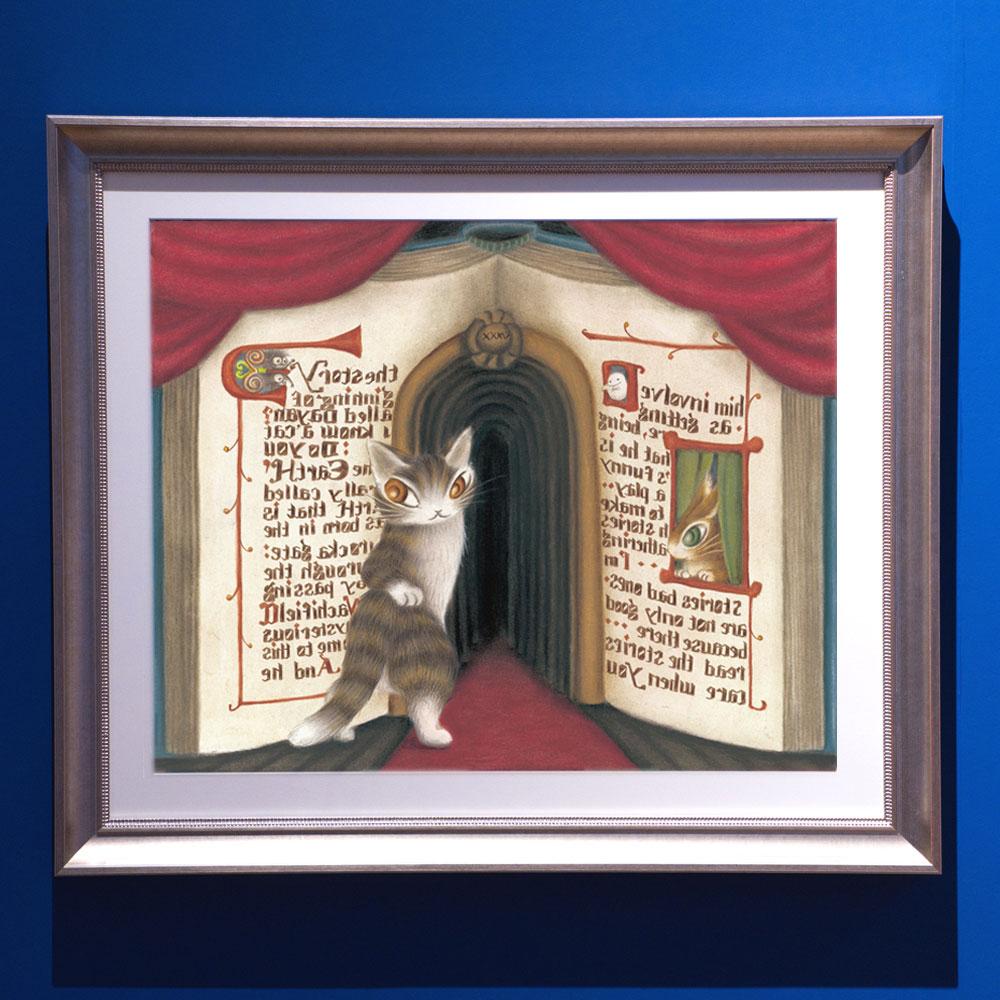 XXIV
the story
of
called Dayan:
I know a cat
: Do you
the EartH
called
EartH that is
born in the
gate:
through the
by passing
Wachifield
mysterious
to this
And he
him involve
as getting
being
that he is
's funny
a play.
to make
stories
I'm
Stories bad ones
are not only good
because there
read the stories
care when You